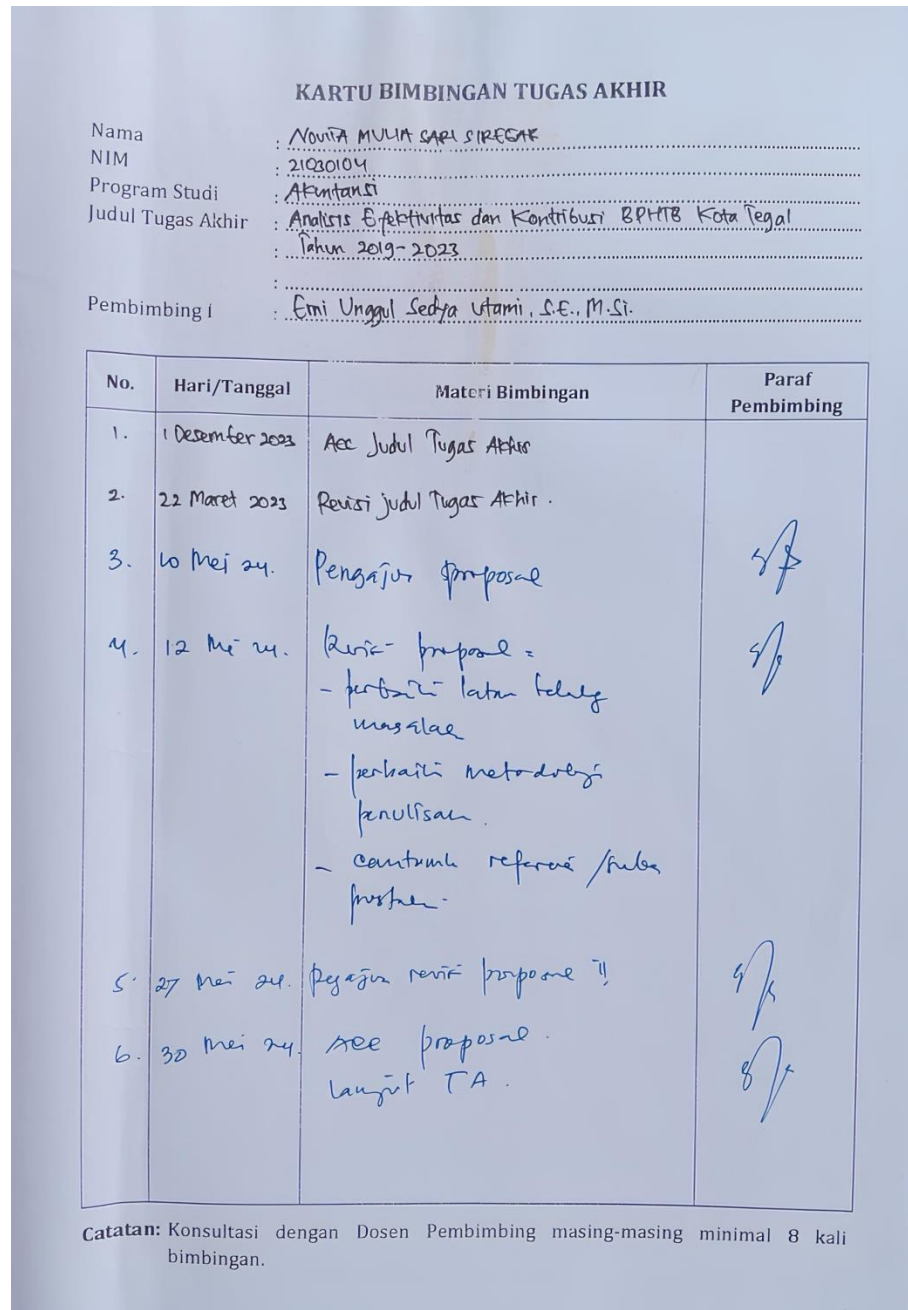 KARTU BIMBINGAN TUGAS AKHIR
Nama : NOVITA MULIA SARI SIREGAR
NIM : 21030104
Program Studi : Akuntansi
Judul Tugas Akhir : Analisis Efektivitas dan Kontribusi BPHTB Kota Tegal
: Tahun 2019-2023
:
Pembimbing I : Erni Unggul Sedya Utami, S.E., M.Si.
No. Hari/Tanggal Materi Bimbingan Paraf
Pembimbing
1. 1 Desember 2023 Acc Judul Tugas Akhir
2. 22 Maret 2023 Revisi judul Tugas Akhir.
3. 10 Mei 24. Pengajuan proposal
4. 12 Mei 24. Revisi proposal =
- perbaiki latar belakang
masalah
- perbaiki metodologi
penulisan.
- cantumkan referensi /
5. 27 Mei 24. Pengajuan revisi proposal !!
6. 30 Mei 24. Acc proposal.
Lanjut TA.
Catatan: Konsultasi dengan Dosen Pembimbing masing-masing minimal 8 kali
bimbingan.